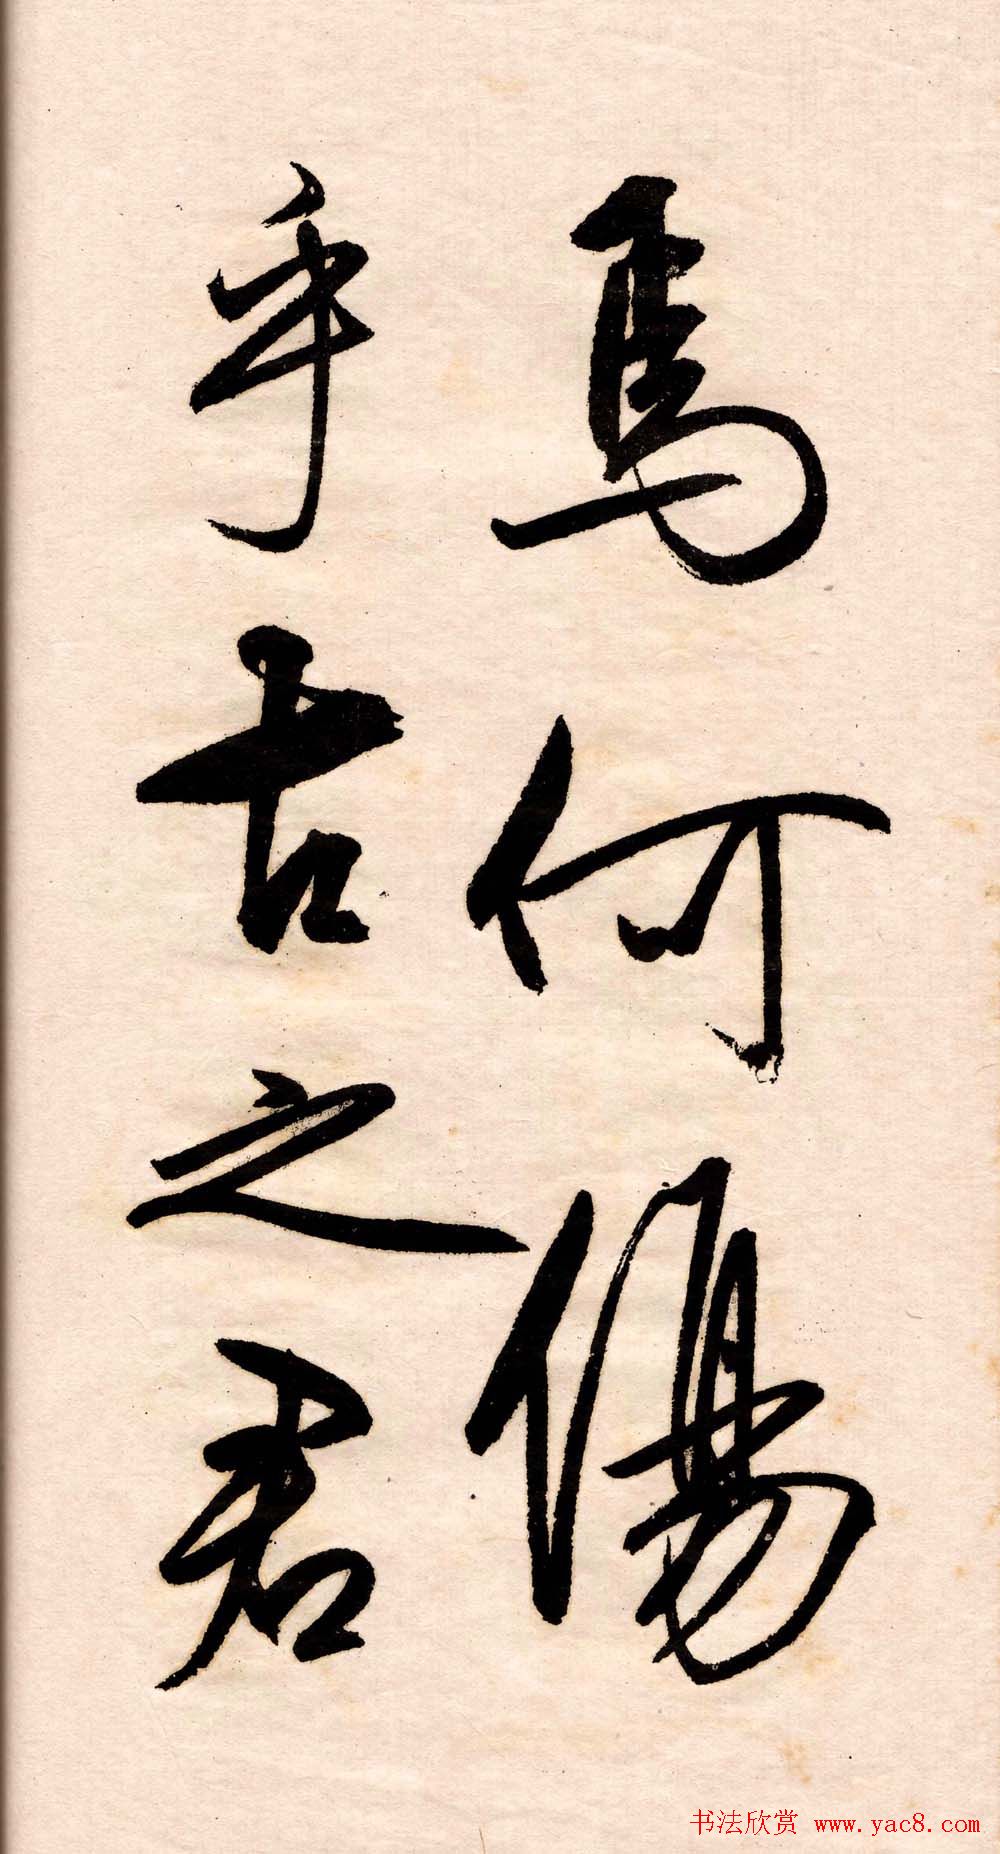 馬何傷
乎古之君
书法欣赏 www.yac8.com